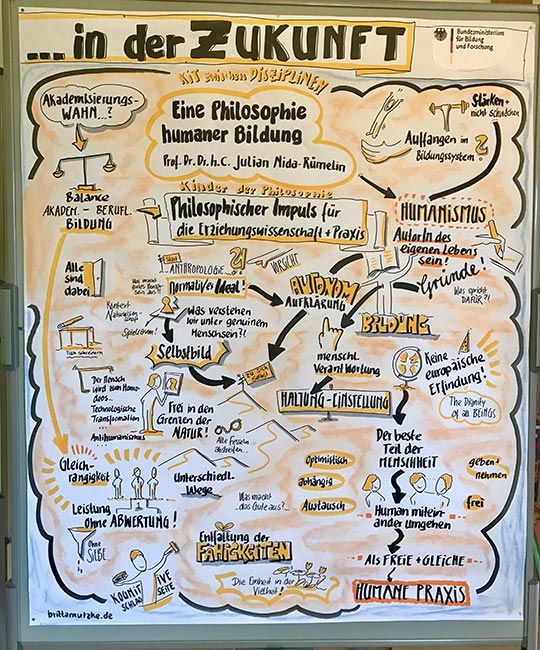 ... in der ZUKUNFT
Bundesministerium
für Bildung
und Forschung
KIT zwischen DISZIPLINEN
Eine Philosophie
humaner Bildung
Prof. Dr. Dr. h.c. Julian Nida-Rümelin
Akademisierungs-
WAHN...?
Balance
AKADEM. - BERUFL.
BILDUNG
Stärken +
nicht schwächen
Auffangen in
Bildungssystem?
Kinder der Philosophie
Philosophischer Impuls für
die Erziehungswissenschaft + Praxis
HUMANISMUS
AutorIn des
eigenen Lebens
sein!
Gründe!
Was spricht
DAFÜR?!
Alle
sind
dabei
ANTHROPOLOGIE...?!
VORSICHT
normatives Ideal!
AUTONOM
AUFKLÄRUNG
BILDUNG
Kontext
Naturwissen-
schaft
Spielraum!
Was verstehen
wir unter genuinem
Menschsein?!
Selbstbild
menschl.
Verantwortung
Keine
europäische
Erfindung!
The Dignity
of all BEINGS
Tisch schreinern
Der Mensch
wird zum Homo-
deos...
Technologische
Transformation
...
Antihumanismus
Frei in den
Grenzen der
NATUR!
Alte Fesseln
abstreifen...
HALTUNG-EINSTELLUNG
Der beste
Teil der
MENSCHHEIT
Optimistisch
abhängig
Austausch
geben +
nehmen
frei
Human mitein-
ander umgehen
Gleich-
rangigkeit
Unterschiedl.
Wege
Leistung
ohne ABWERTUNG!
Was macht
das Gute aus?...
Ohne
SIEBE
Entfaltung der
FÄHIGKEITEN
Die Einheit in der
Vielheit!
Als FREIE + GLEICHE
HUMANE PRAXIS
KOGNITIVE
SCHLAG SEITE
brittamutzke.de